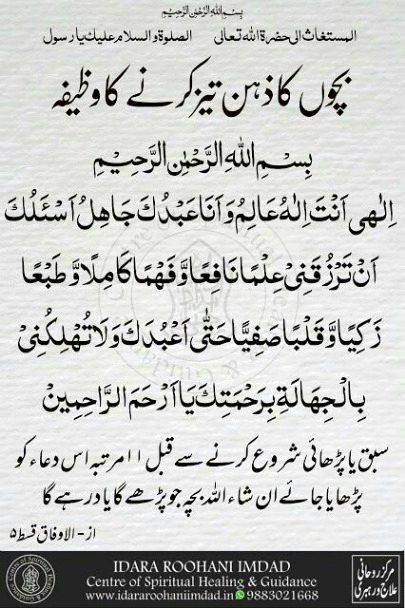 بِسْمِ اللهِ الرَّحْمٰنِ الرَّحِيْمِ
المستغاث الی حضرة اللہ تعالی الصلوۃ والسلام علیک یا رسول
بچوں کا ذہن تیز کرنے کا وظیفہ
بِسْمِ اللهِ الرَّحْمٰنِ الرَّحِيْمِ
اِلٰهِى اَنْتَ اِلٰهُ عَالِمُ وَ اَنَا عَبْدُكَ جَاهِلُ اَسْئَلُكَ
اَنْ تَرْزُقَنِىْ عِلْمًا نَافِعًا وَّ فَهْمًا كَامِلًا وَّ طَبْعًا
زَكِيًّا وَّ قَلْبًا صَفِيًّا حَتّٰى اَعْبُدَكَ وَلَا تُهْلِكْنِىْ
بِالْجِهَالَةِ بِرَحْمَتِكَ يَا اَرْحَمَ الرَّاحِمِيْنَ
سبق یا پڑھائی شروع کرنے سے قبل ۱۱ مرتبہ اس دعاء کو
پڑھا یا جائے ان شاء اللہ بچہ جو پڑھے گا یاد رہے گا
از - الاوفاق قسط ۵
IDARA ROOHANI IMDAD
Centre of Spiritual Healing & Guidance
www.idararoohaniimdad.com 9883021668
مرکز روحانی
علاج و رہبری